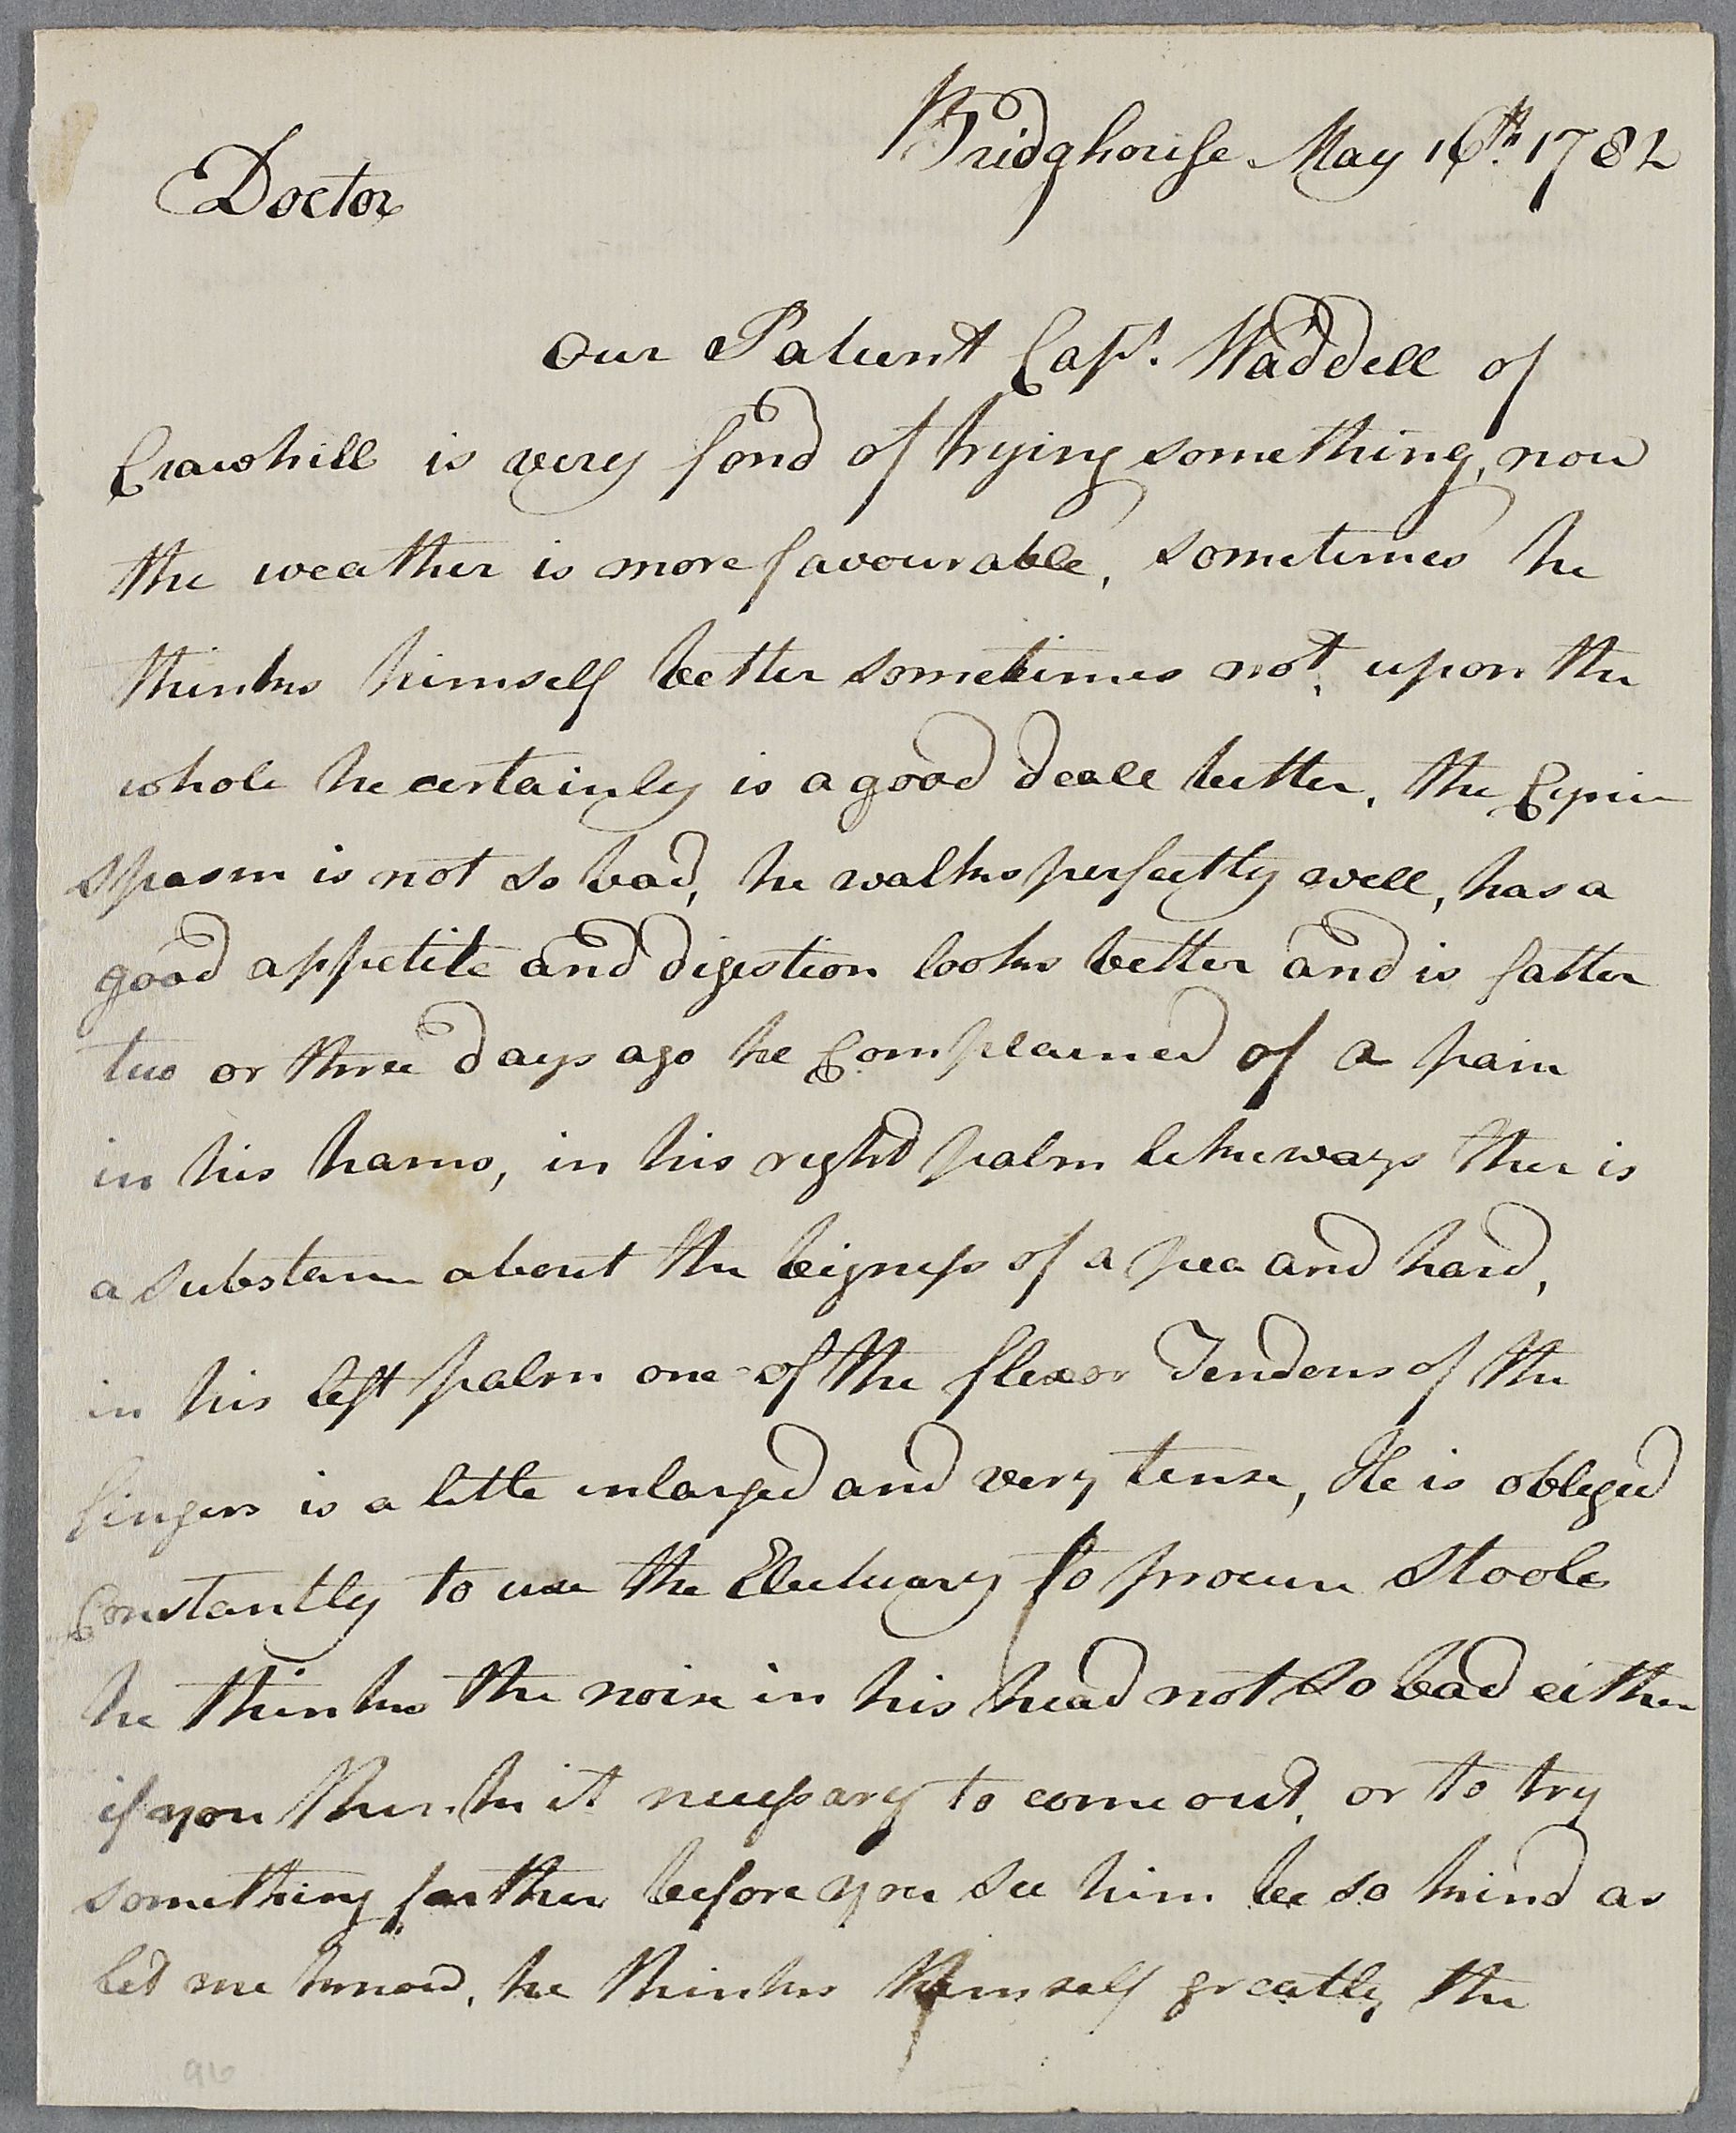 Bridghouse May 16th. 1782
Doctor
Our Patient Capt. Waddell of
Crawhill is very fond of trying something, now
the weather is more favourable, sometimes he
thinks himself better sometimes not, upon the
whole he certainly is a good deall better, the
spasm is not so bad, he walks perfectly well, has a
good appetite and digestion looks better and is fatter
two or three days ago he Complained of a pain
in his hams, in his right palm likeways ther is
a substance about the bigness of a pea and hard,
in his left palm one of the flexor Tendons of the
fingers is a little enlarged and very tense, He is obliged
Constantly to use the Electuary to procure Stools
he thinks the noise in his head not so bad either
if you think it necessary to come out, or to try
something farther before you see him be so kind as
let me know, he thinks himself greatly the
96